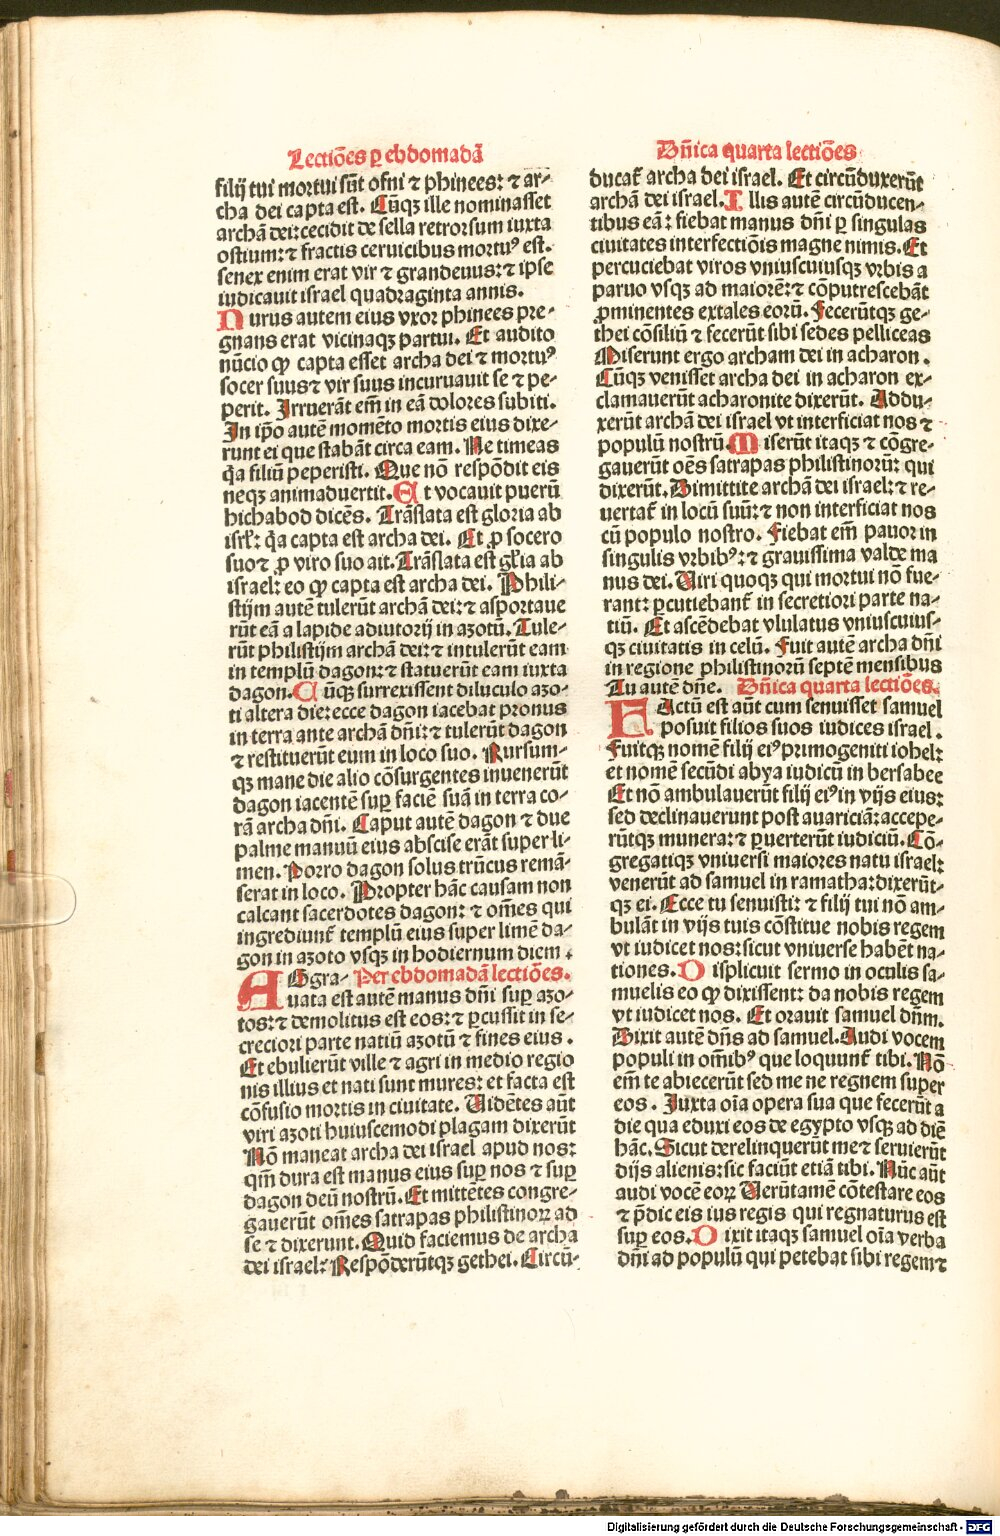 Lectiões ꝑ ebdomadã
filij tui mortui sũt ofni ⁊ phinees: ⁊ ar-
cha dei capta est. Cũqꝫ ille nominasset
archã dei: cecidit de sella retrorsum iuxta
ostium: ⁊ fractis ceruicibus mortuꝰ est.
senex enim erat vir ⁊ grandeuus: ⁊ ipse
iudicauit israel quadraginta annis.
Nurus autem eius vxor phinees pre-
gnans erat vicinaqꝫ partui. Et audito
nũcio ꝙ capta esset archa dei ⁊ mortuꝰ
socer suus ⁊ vir suus incuruauit se ⁊ pe-
perit. Irruerãt em̃ in eã dolores subiti.
In ip̃o autẽ momẽto mortis eius dixe-
runt ei que stabãt circa eam. Ne timeas
q̃a filiũ peperisti. Que nõ respõdit eis
neqꝫ animaduertit. Et vocauit puerũ
hichabod dicẽs. Trãslata est gloria ab
isrł: q̃a capta est archa dei. Et ꝓ socero
suo ⁊ ꝓ viro suo ait. Trãslata est głia ab
israel: eo ꝙ capta est archa dei. Phili-
stijm autẽ tulerũt archã dei: ⁊ asportaue
rũt eã a lapide adiutorij in azotũ. Tule-
rũt philistijm archã dei: ⁊ intulerũt eam
in templũ dagon: ⁊ statuerũt eam iuxta
dagon. Cũqꝫ surrexissent diluculo azo-
ti altera die: ecce dagon iacebat pronus
in terra ante archã dñi: ⁊ tulerũt dagon
⁊ restituerũt eum in loco suo. Rursum-
qꝫ mane die alio cõsurgentes inuenerũt
dagon iacentẽ suꝑ faciẽ suã in terra co-
rã archa dñi. Caput autẽ dagon ⁊ due
palme manuũ eius abscise erãt super li-
men. Porro dagon solus trũcus remã-
serat in loco. Propter hãc causam non
calcant sacerdotes dagon: ⁊ om̃es qui
ingrediunt᷑ templũ eius super limẽ da-
gon in azoto vsqꝫ in hodiernum diem.
AGgra- Per ebdomadã lectiões.
uata est autẽ manus dñi suꝑ azo-
tos: ⁊ demolitus est eos: ⁊ ꝑcussit in se-
creciori parte natiũ azotũ ⁊ fines eius.
Et ebulierũt ville ⁊ agri in medio regio
nis illius et nati sunt mures: et facta est
cõfusio mortis in ciuitate. Uidẽtes aũt
viri azoti huiuscemodi plagam dixerũt
Nõ maneat archa dei israel apud nos:
qm̃ dura est manus eius suꝑ nos ⁊ suꝑ
dagon deũ nostrũ. Et mittẽtes congre-
gauerũt om̃es satrapas philistinoꝝ ad
se ⁊ dixerunt. Quid faciemus de archa
dei israel: Respõderũtqꝫ gethei. Circũ-
Dñica quarta lectiões
ducat᷑ archa dei israel. Et circũduxerũt
archã dei israel. Illis autẽ circũducen-
tibus eã: fiebat manus dñi ꝑ singulas
ciuitates interfectiõis magne nimis. Et
percuciebat viros vniuscuiusqꝫ vrbis a
paruo vsqꝫ ad maiorẽ: ⁊ cõputrescebãt
ꝓminentes extales eorũ. Fecerũtqꝫ ge-
thei cõsiliũ ⁊ fecerũt sibi sedes pelliceas
Miserunt ergo archam dei in acharon.
Cũqꝫ venisset archa dei in acharon ex-
clamauerũt acharonite dixerũt. Addu-
xerũt archã dei israel vt interficiat nos ⁊
populũ nostrũ. Miserũt itaqꝫ ⁊ cõgre-
gauerũt oẽs satrapas philistinorũ: qui
dixerũt. Dimittite archã dei israel: ⁊ re-
uertat᷑ in locũ suũ: ⁊ non interficiat nos
cũ populo nostro. Fiebat em̃ pauor in
singulis vrbibꝰ: ⁊ grauissima valde ma
nus dei. Uiri quoqꝫ qui mortui nõ fue-
rant: ꝑcutiebant᷑ in secretiori parte na-
tiũ. Et ascẽdebat vlulatus vniuscuius-
qꝫ ciuitatis in celũ. Fuit autẽ archa dñi
in regione philistinorũ septẽ mensibus
Tu autẽ dñe. Dñica quarta lectiões.
FActũ est aũt cum senuisset samuel
posuit filios suos iudices israel.
Fuitqꝫ nomẽ filij eiꝰ primogeniti iohel:
et nomẽ secũdi abya iudicũ in bersabee
Et nõ ambulauerũt filij eiꝰ in vijs eius:
sed declinauerunt post auariciã: accepe-
rũtqꝫ munera: ⁊ ꝑuerterũt iudiciũ. Cõ-
gregatiqꝫ vniuersi maiores natu israel:
venerũt ad samuel in ramatha: dixerũt-
qꝫ ei. Ecce tu senuisti: ⁊ filij tui nõ am-
bulãt in vijs tuis cõstitue nobis regem
vt iudicet nos: sicut vniuerse habẽt na-
tiones. Displicuit sermo in oculis sa-
muelis eo ꝙ dixissent: da nobis regem
vt iudicet nos. Et orauit samuel dñm.
Dixit autẽ dñs ad samuel. Audi vocem
populi in om̃ibꝰ que loquunt᷑ tibi. Nõ
em̃ te abiecerũt sed me ne regnem super
eos. Iuxta oĩa opera sua que fecerũt a
die qua eduxi eos de egypto vsqꝫ ad diẽ
hãc. Sicut derelinquerũt me ⁊ seruierũt
dijs alienis: sic faciũt etiã tibi. Nũc aũt
audi vocẽ eoꝝ Uerũtamẽ cõtestare eos
⁊ p̃dic eis ius regis qui regnaturus est
suꝑ eos. Dixit itaqꝫ samuel oĩa verba
dñi ad populũ qui petebat sibi regem ⁊
Digitalisierung gefördert durch die Deutsche Forschungsgemeinschaft - DFG